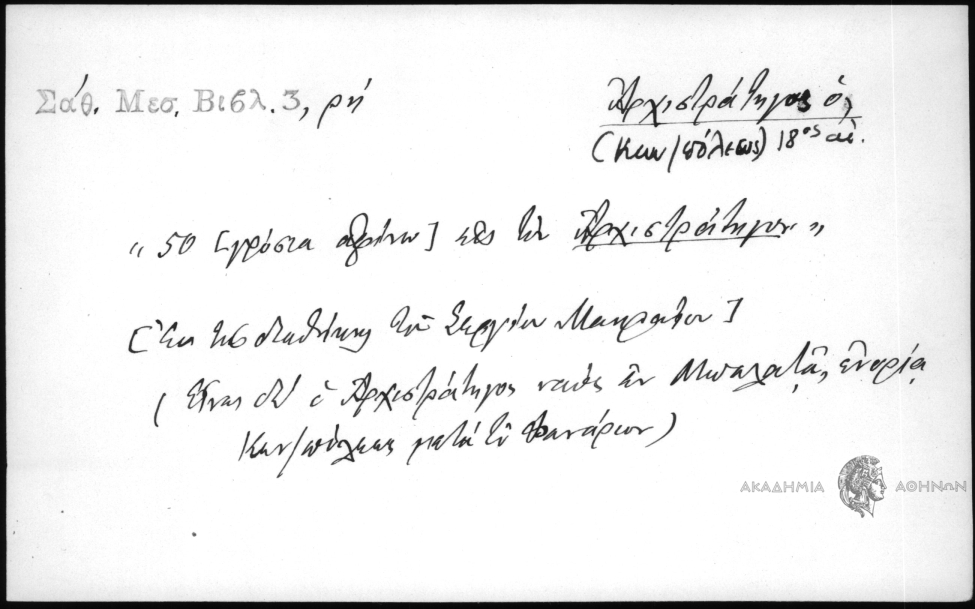 Σάθ. Μεσ. Βιβλ. 3, ρή
Ἀρχιστράτηγος ὁ,
(Κων/πόλεως) 18ος αἰ.
„ 50 [γρόσια ἀφίνω] εἰς τὸν Ἀρχιστράτηγον "
[Ἐκ τῆς διαθήκης τοῦ Σεργίου Μακραίου]
(Εἶναι δὲ ὁ Ἀρχιστράτηγος ναὸς ἐν Μπαλατᾷ, ἐνορίᾳ
Κων/πόλεως μετὰ τὸ Φανάριον)
ΑΚΑΔΗΜΙΑ ΑΘΗΝΩΝ